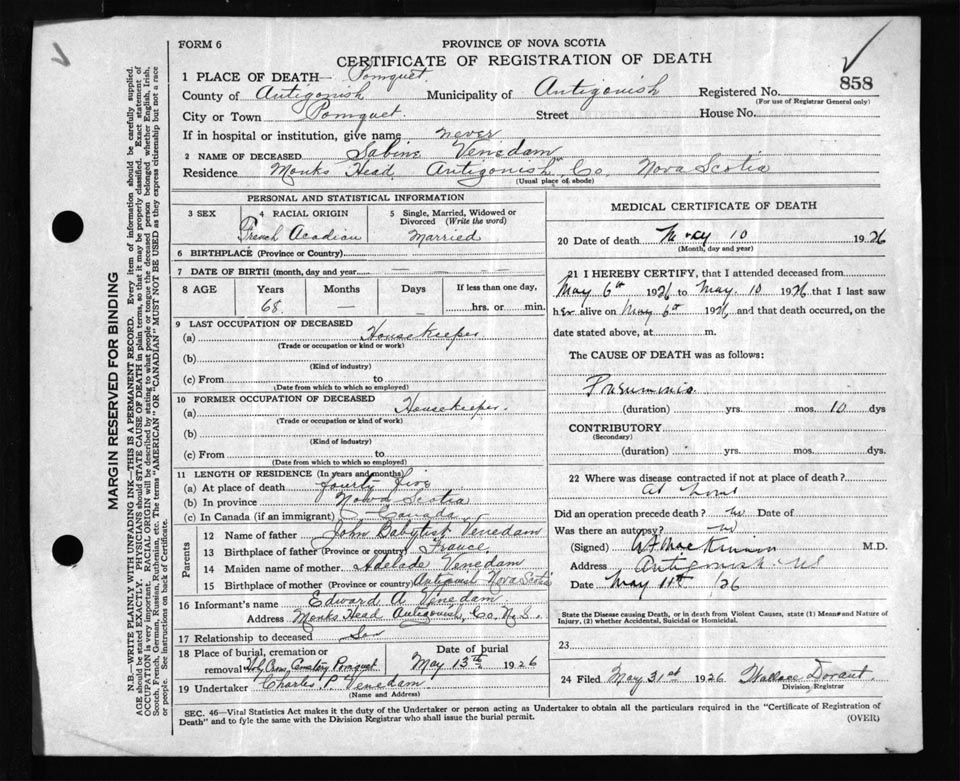 FORM 6
PROVINCE OF NOVA SCOTIA
CERTIFICATE OF REGISTRATION OF DEATH
858
1 PLACE OF DEATH— Pomquet
County of Antigonish Municipality of Antigonish Registered No.
(For use of Registrar General only)
City or Town Pomquet. Street House No.
If in hospital or institution, give name never
2 NAME OF DECEASED Sabine Venedam
Residence Monks Head, Antigonish, Co, Nova Scotia
(Usual place of abode)
PERSONAL AND STATISTICAL INFORMATION
3 SEX 4 RACIAL ORIGIN 5 Single, Married, Widowed or Divorced (Write the word)
French Acadian Married
6 BIRTHPLACE (Province or Country)
7 DATE OF BIRTH (month, day and year — — —
8 AGE Years Months Days If less than one day,
68. — hrs. or min.
9 LAST OCCUPATION OF DECEASED
(a) Housekeeper
(Trade or occupation or kind or work)
(b)
(Kind of industry)
(c) From to
(Date from which to which so employed)
10 FORMER OCCUPATION OF DECEASED
(a) Housekeeper.
(Trade or occupation or kind of work)
(b)
(Kind of industry)
(c) From to
(Date from which to which so employed)
11 LENGTH OF RESIDENCE (In years and months)
(a) At place of death fourty five
(b) In province Nowa Scotia
(c) In Canada (if an immigrant) Canada
Parents
12 Name of father John Babytist Venedam
13 Birthplace of father (Province or country) France
14 Maiden name of mother Adelaide Venedam
15 Birthplace of mother (Province or country) Antigonish Nova Scotia
16 Informant's name Edward A Venedam
Address Monks Head Antigonish, Co, N, S.
17 Relationship to deceased Son
18 Place of burial, cremation or removal Holy Cross, Cemetery Pomquet
Date of burial
May 13th 1926
19 Undertaker Charles P. Venedam
(Name and Address)
MEDICAL CERTIFICATE OF DEATH
20 Date of death May 10 1926
(Month, day and year)
21 I HEREBY CERTIFY, that I attended deceased from
May 6th 1926 to May. 10 1926 that I last saw
her alive on May 6th 1926 and that death occurred, on the
date stated above, at m.
The CAUSE OF DEATH was as follows:
Pneumonia
(duration) yrs. mos. 10 dys
CONTRIBUTORY
(Secondary)
(duration) yrs. mos. dys.
22 Where was disease contracted if not at place of death?
at home
Did an operation precede death? no Date of
Was there an autopsy? no
(Signed) MacKinnon M.D.
Address Antigonish NS
Date May 11th /26
State the Disease causing Death, or in death from Violent Causes, state (1) Means and Nature of
Injury, (2) whether Accidental, Suicidal or Homicidal.
23
24 Filed May 31st 1926 Wallace Dorant
Division Registrar
SEC. 46—Vital Statistics Act makes it the duty of the Undertaker or person acting as Undertaker to obtain all the particulars required in the "Certificate of Registration of
Death" and to fyle the same with the Division Registrar who shall issue the burial permit.
(OVER)
MARGIN RESERVED FOR BINDING
N.B.—WRITE PLAINLY WITH UNFADING INK—THIS IS A PERMANENT RECORD. Every item of information should be carefully supplied.
AGE should be stated EXACTLY. PHYSICIANS should STATE CAUSE OF DEATH in plain terms, so that it may be properly classified. Exact statement of
OCCUPATION is very important. RACIAL ORIGIN will be described by stating to what people or tongue the deceased person belonged whether English, Irish,
Scotch, French, German, Russian, Ruthenian, etc. The terms "AMERICAN" or "CANADIAN" MUST NOT BE USED as they express citizenship but not a race
or people. See instructions on back of Certificate.